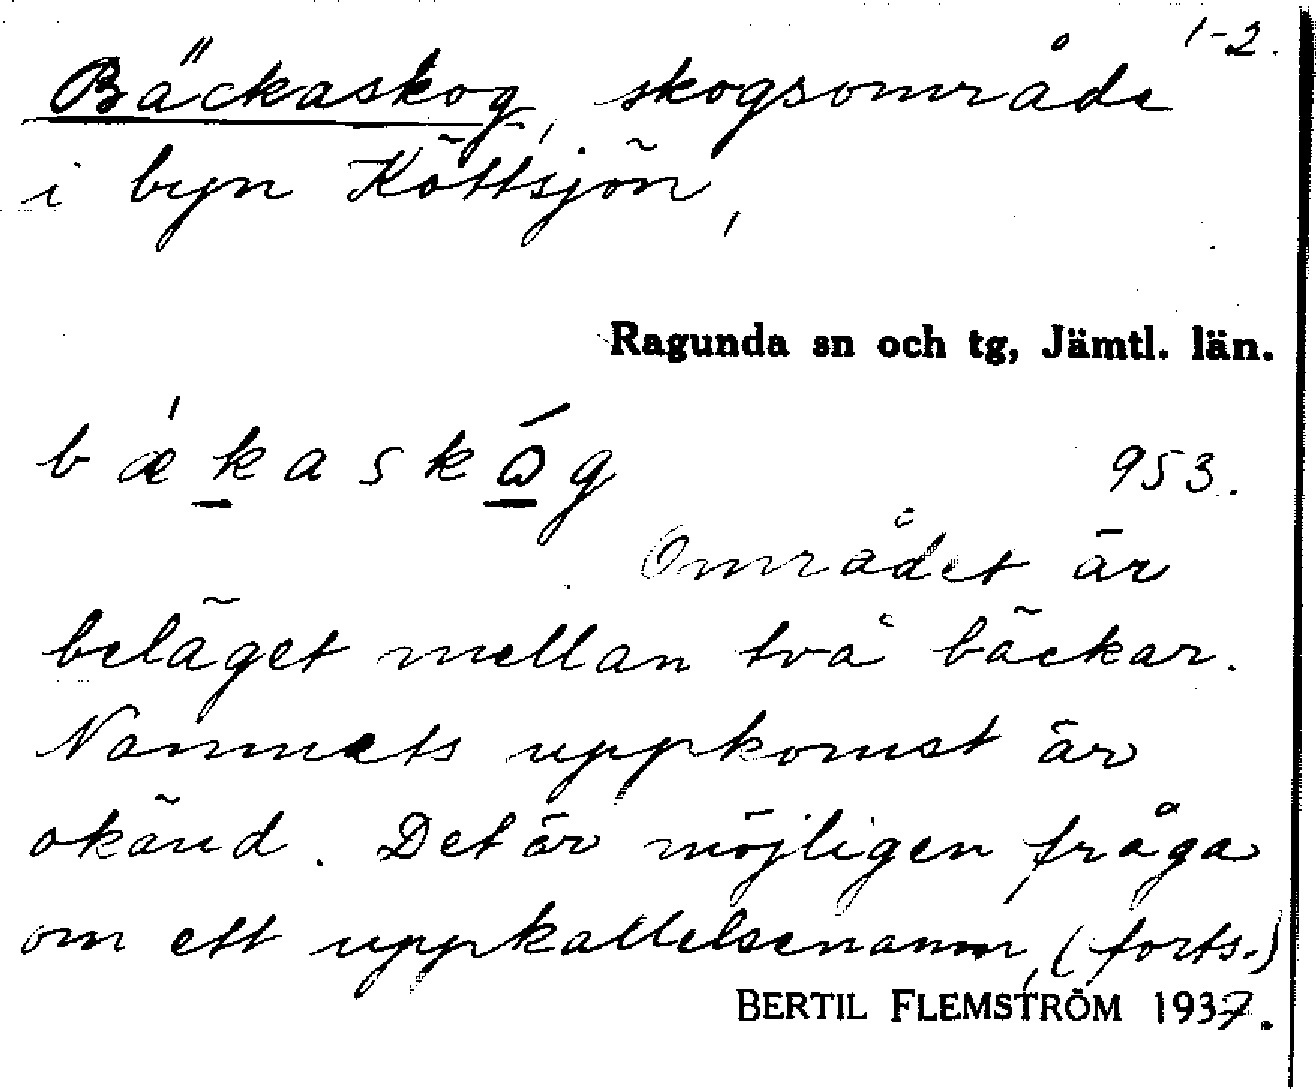 1-2.
Bäckaskog, skogsområde
i byn Köttsjön,
Ragunda sn och tg, Jämtl. län.
bǽkaskǿg 953.
Området är
beläget mellan två bäckar.
Namnets uppkomst är
okänd. Det är möjligen fråga
om ett uppkallelsenamn, (forts.)
BERTIL FLEMSTRÖM 1937.